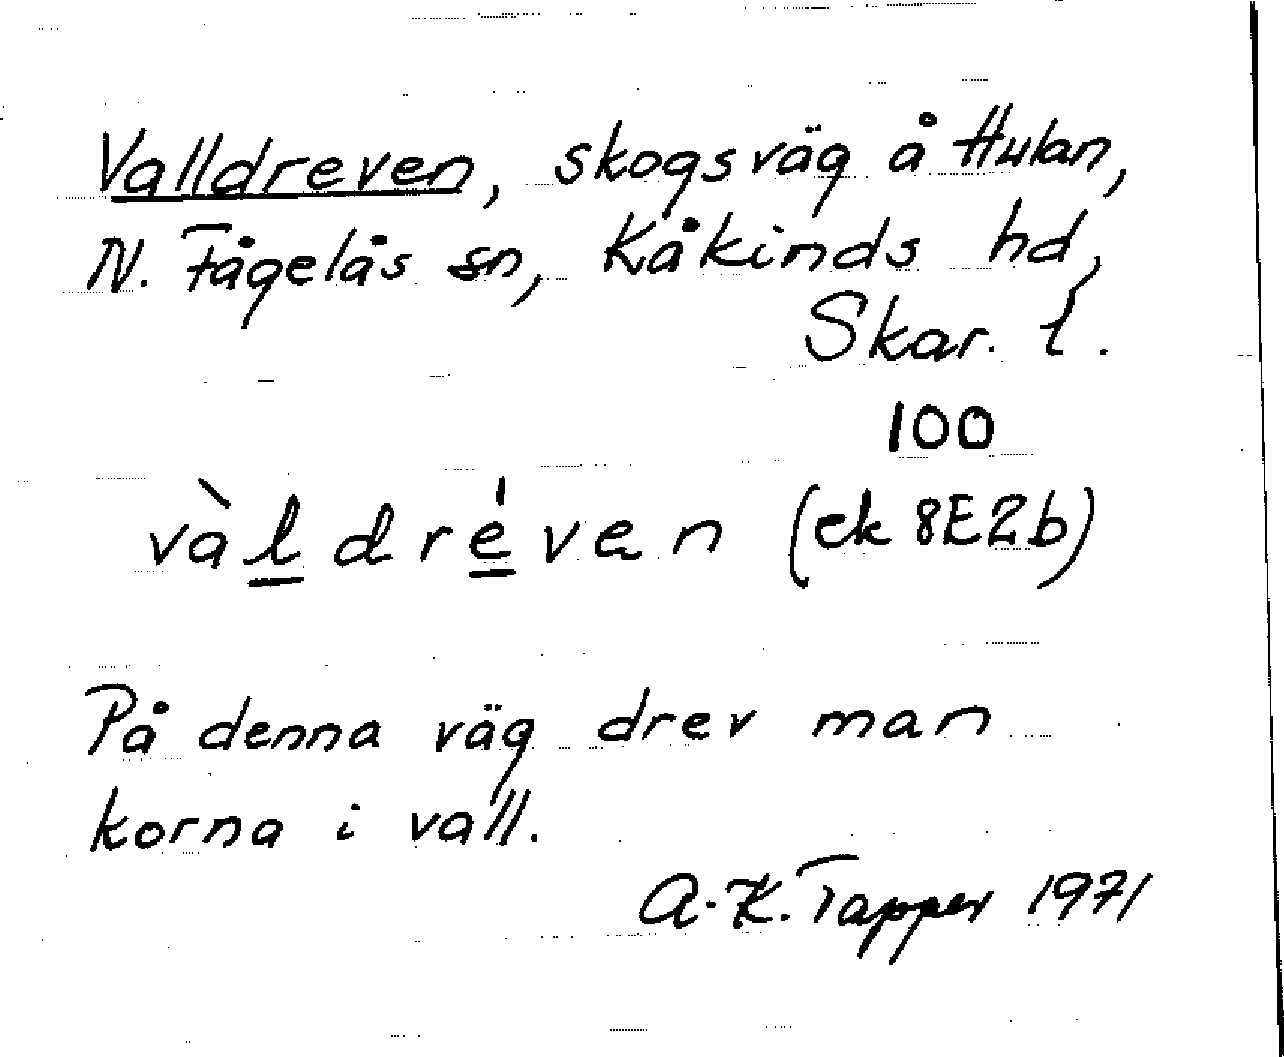 Valldreven, skogsväg å Hulan,
N. Fågelås sn, Kåkinds hd,
Skar. l.
100
vàldréven (ek 8E2b)
På denna väg drev man
korna i vall.
A.-K. Tapper 1971